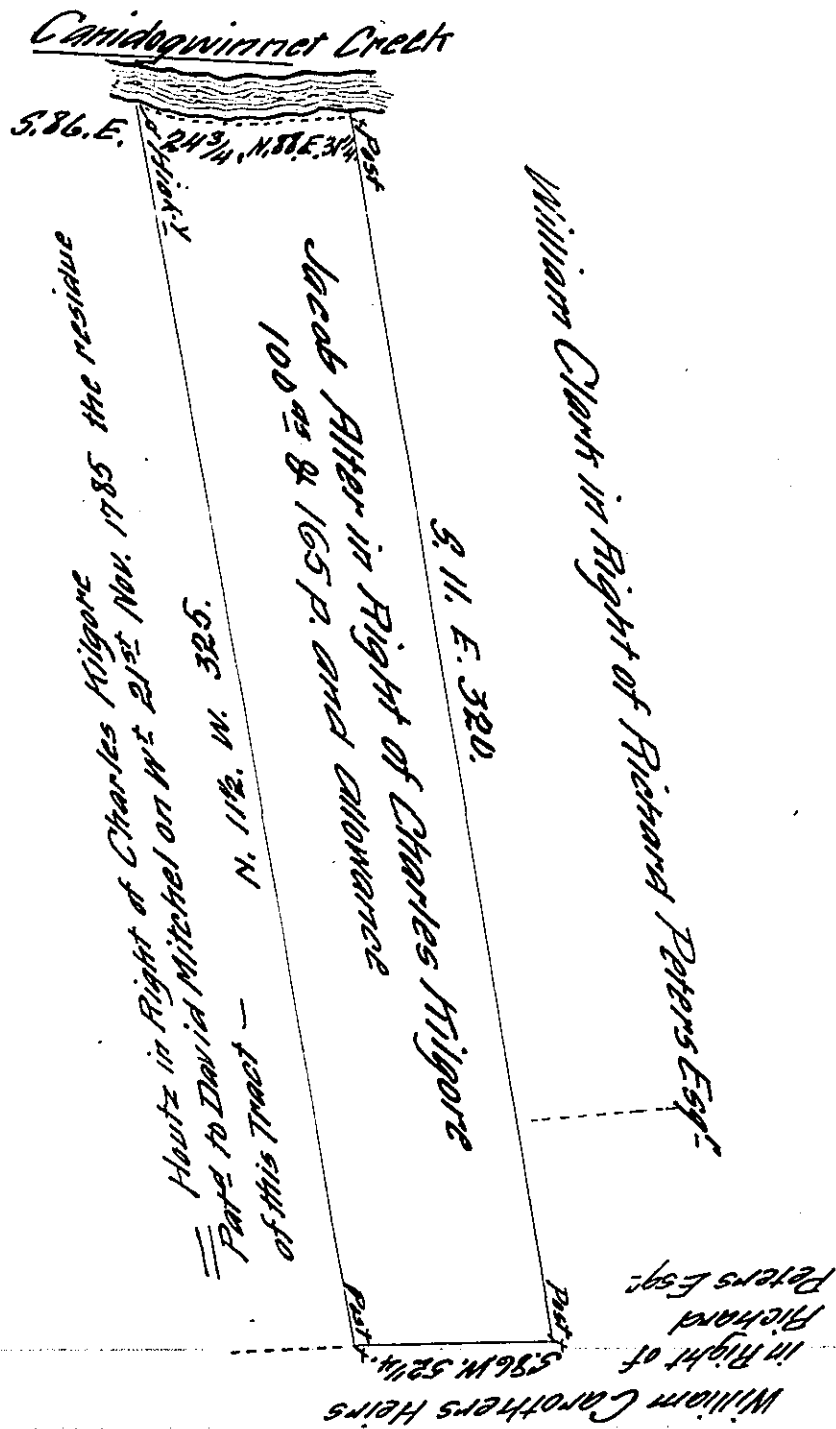 Canidogwinnet Creek
S. 86. E. 24 3/4. N. 88. E. 31 1/4.
Post
Hick-y
William Clark in Right of Richard Peters Esqr
S. 11. E. 320.
Jacob Alter in Right of Charles Kilgore
100 as & 165 p. and allowance
N. 11 1/2. W. 325.
Houtz in Right of Charles Kilgore
Patd to David Mitchel on Wt 21st Nov. 1785 the residue
of this Tract —
Post
Post
S. 86 W. 52 1/4.
William Carothers Heirs
in Right of
Richard
Peters Esqr